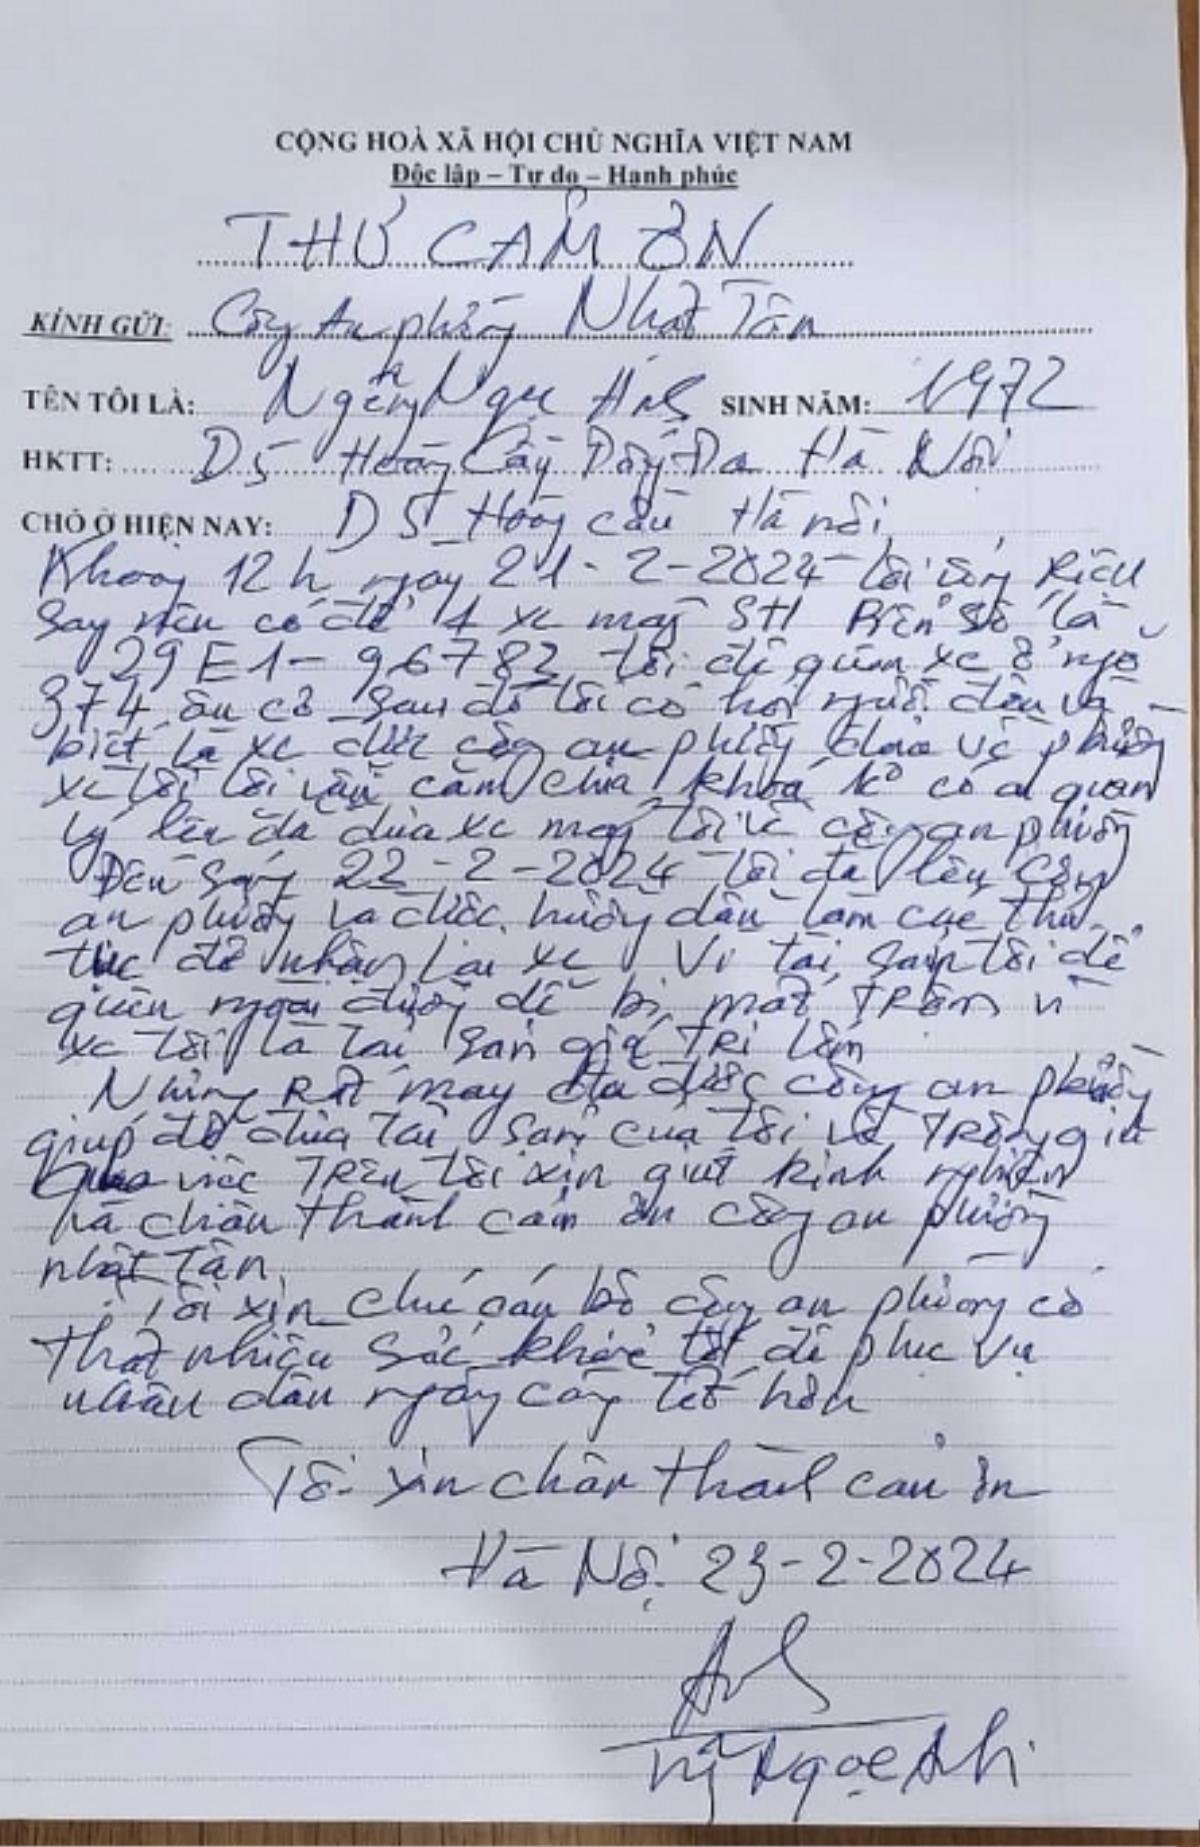 CỘNG HOÀ XÃ HỘI CHỦ NGHĨA VIỆT NAM
Độc lập – Tự do – Hạnh phúc
THƯ CẢM ƠN
KÍNH GỬI: Công An phường Nhật Tân
TÊN TÔI LÀ: Ngọc SINH NĂM: 1972
HKTT: D5 Hoàng Cầu Đống Đa Hà Nội
CHỖ Ở HIỆN NAY: D5 Hoàng cầu Hà nội
Khoảng 12h ngày 21-2-2024 tôi uống Rượu
say nên có để 1 xe máy SH Biển số là
29E1-96782 tôi để quên xe ở ngõ
374 âu cơ sau đó tôi có hỏi người dân và
biết là xe được công an phường đưa về phường
xe tôi tôi vẫn cắm chìa khoá ko có ai quản
lý lên đã đưa xe máy tôi về công an phường
Đến sáng 22-2-2024 tôi đã lên công
an phường và được hướng dẫn làm các thủ
tục để nhận lại xe Vì tài sản tôi để
quên ngoài đường dễ bị mất trộm vì
xe tôi là tài sản giá trị lớn
Nhưng Rất may đã được công an phường
giúp đỡ đưa tài sản của tôi về trông giữ
việc trên tôi xin giút kinh nghiệm
và chân thành cảm ơn công an phường
nhật Tân
Tôi xin chúc cán bộ công an phường có
thật nhiều sức khỏe tốt để phục vụ
nhân dân ngày càng tốt hơn
Tôi xin chân thành cảm ơn
Hà Nội 23-2-2024
Ngọc Anh